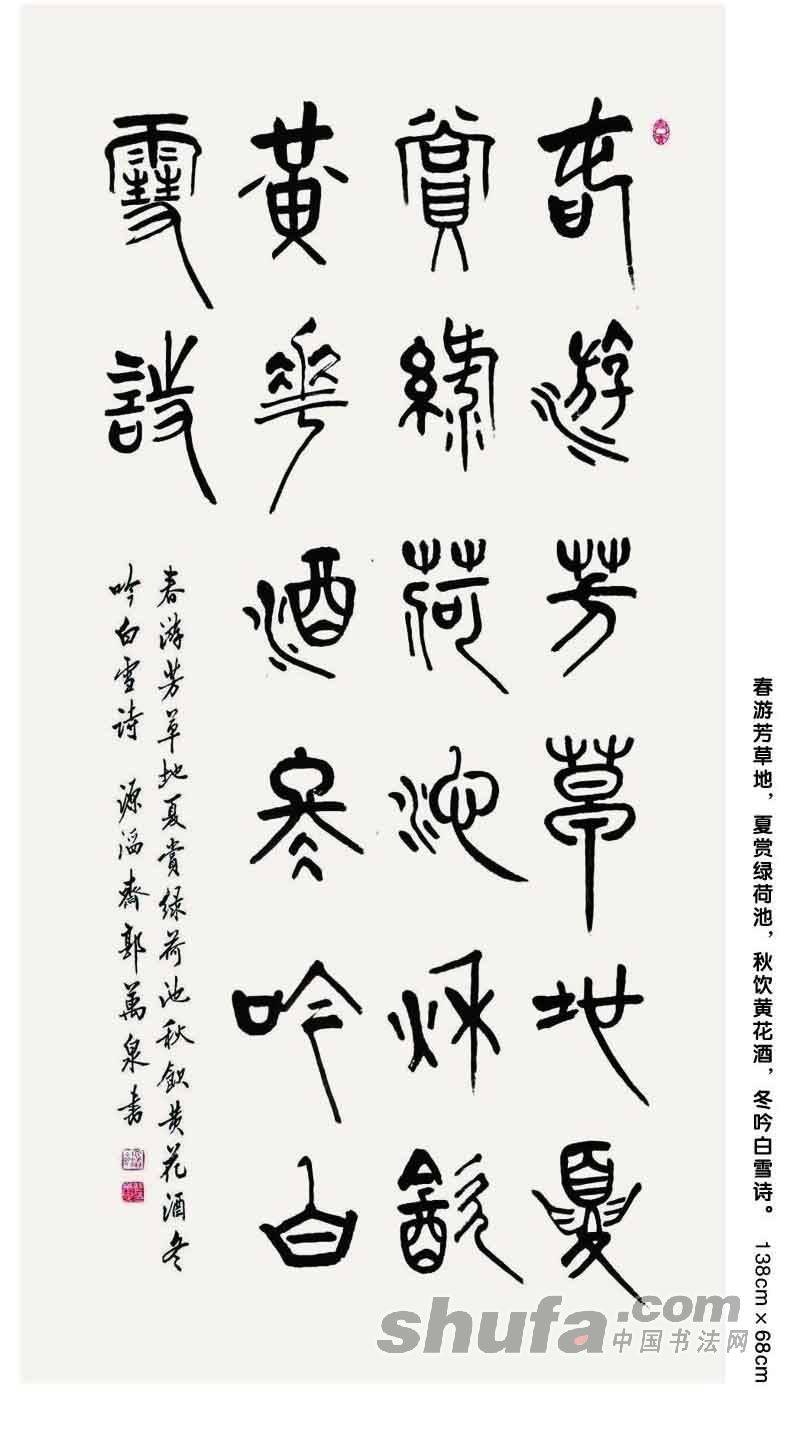 春遊芳草地夏
賞綠荷池秋飲
黃花酒冬吟白
雪詩
春游芳草地夏賞緑荷池秋飲黄花酒冬
吟白雪诗 源滔齋郭萬泉書
春游芳草地，夏赏绿荷池，秋饮黄花酒，冬吟白雪诗。 138cm×68cm
shufa.com
中国书法网